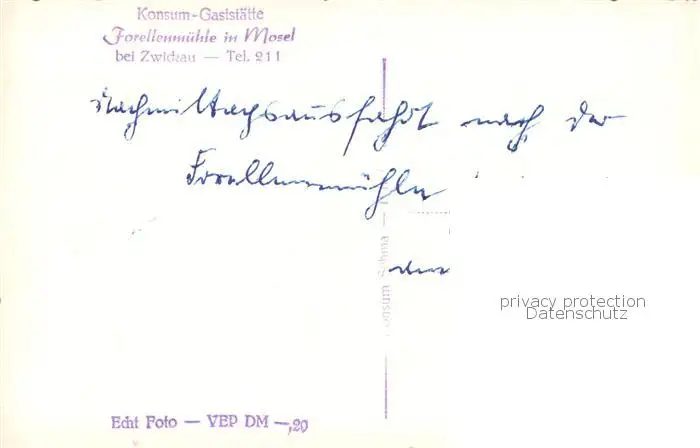 Konsum-Gaststätte
Forellenmühle in Mosel
bei Zwickau — Tel. 211
Nachmittagsausfahrt nach der
Forellenmühle
den
Konsum
privacy protection
Datenschutz
Echt Foto — VEP DM —,20